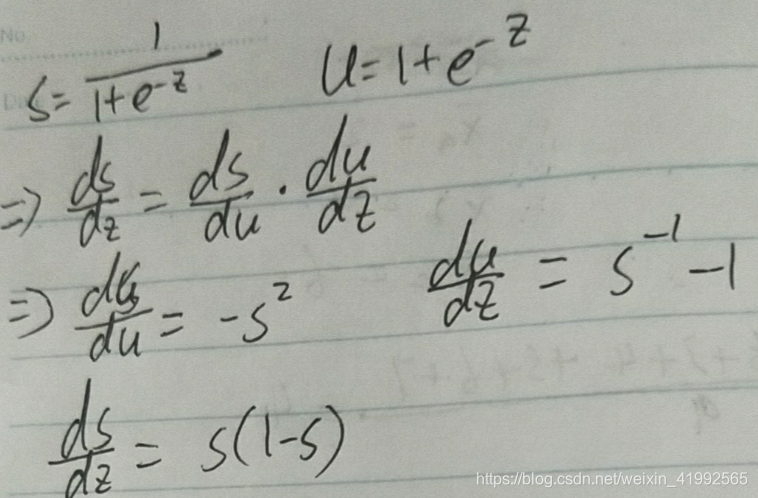 s = 1/(1+e^{-z})    u = 1+e^{-z}
=> ds/dz = ds/du · du/dz
=> ds/du = -s^2    du/dz = s^{-1} - 1
ds/dz = s(1-s)
https://blog.csdn.net/weixin_41992565